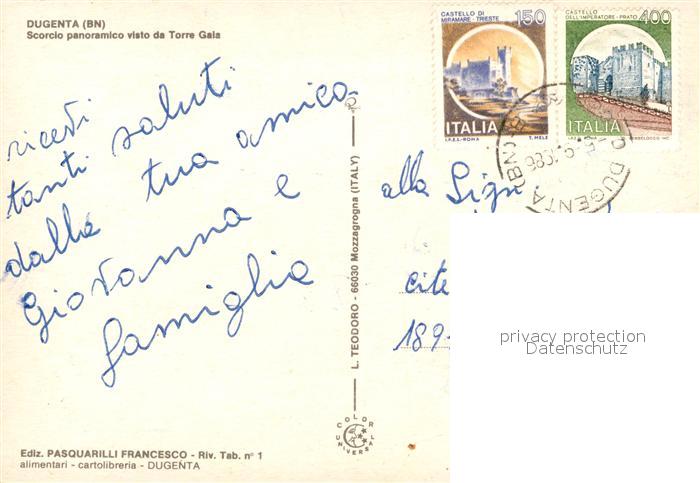 DUGENTA (BN)
Scorcio panoramico visto da Torre Gaia
ricevi
tanti saluti
dalla tua amica
Giovanna e
famiglia
Ediz. PASQUARILLI FRANCESCO - Riv. Tab. n° 1
alimentari - cartolibreria - DUGENTA
L. TEODORO - 66030 Mozzagrogna (ITALY)
COLOR UNIVERSAL
CASTELLO DI
MIRAMARE - TRIESTE
150
ITALIA
I.P.Z.S. - ROMA T. MELE
CASTELLO
DELL'IMPERATORE - PRATO
400
ITALIA
I.P.Z.S. - ROMA
DUGENTA (BN)
alla Sign
cite
189
privacy protection
Datenschutz